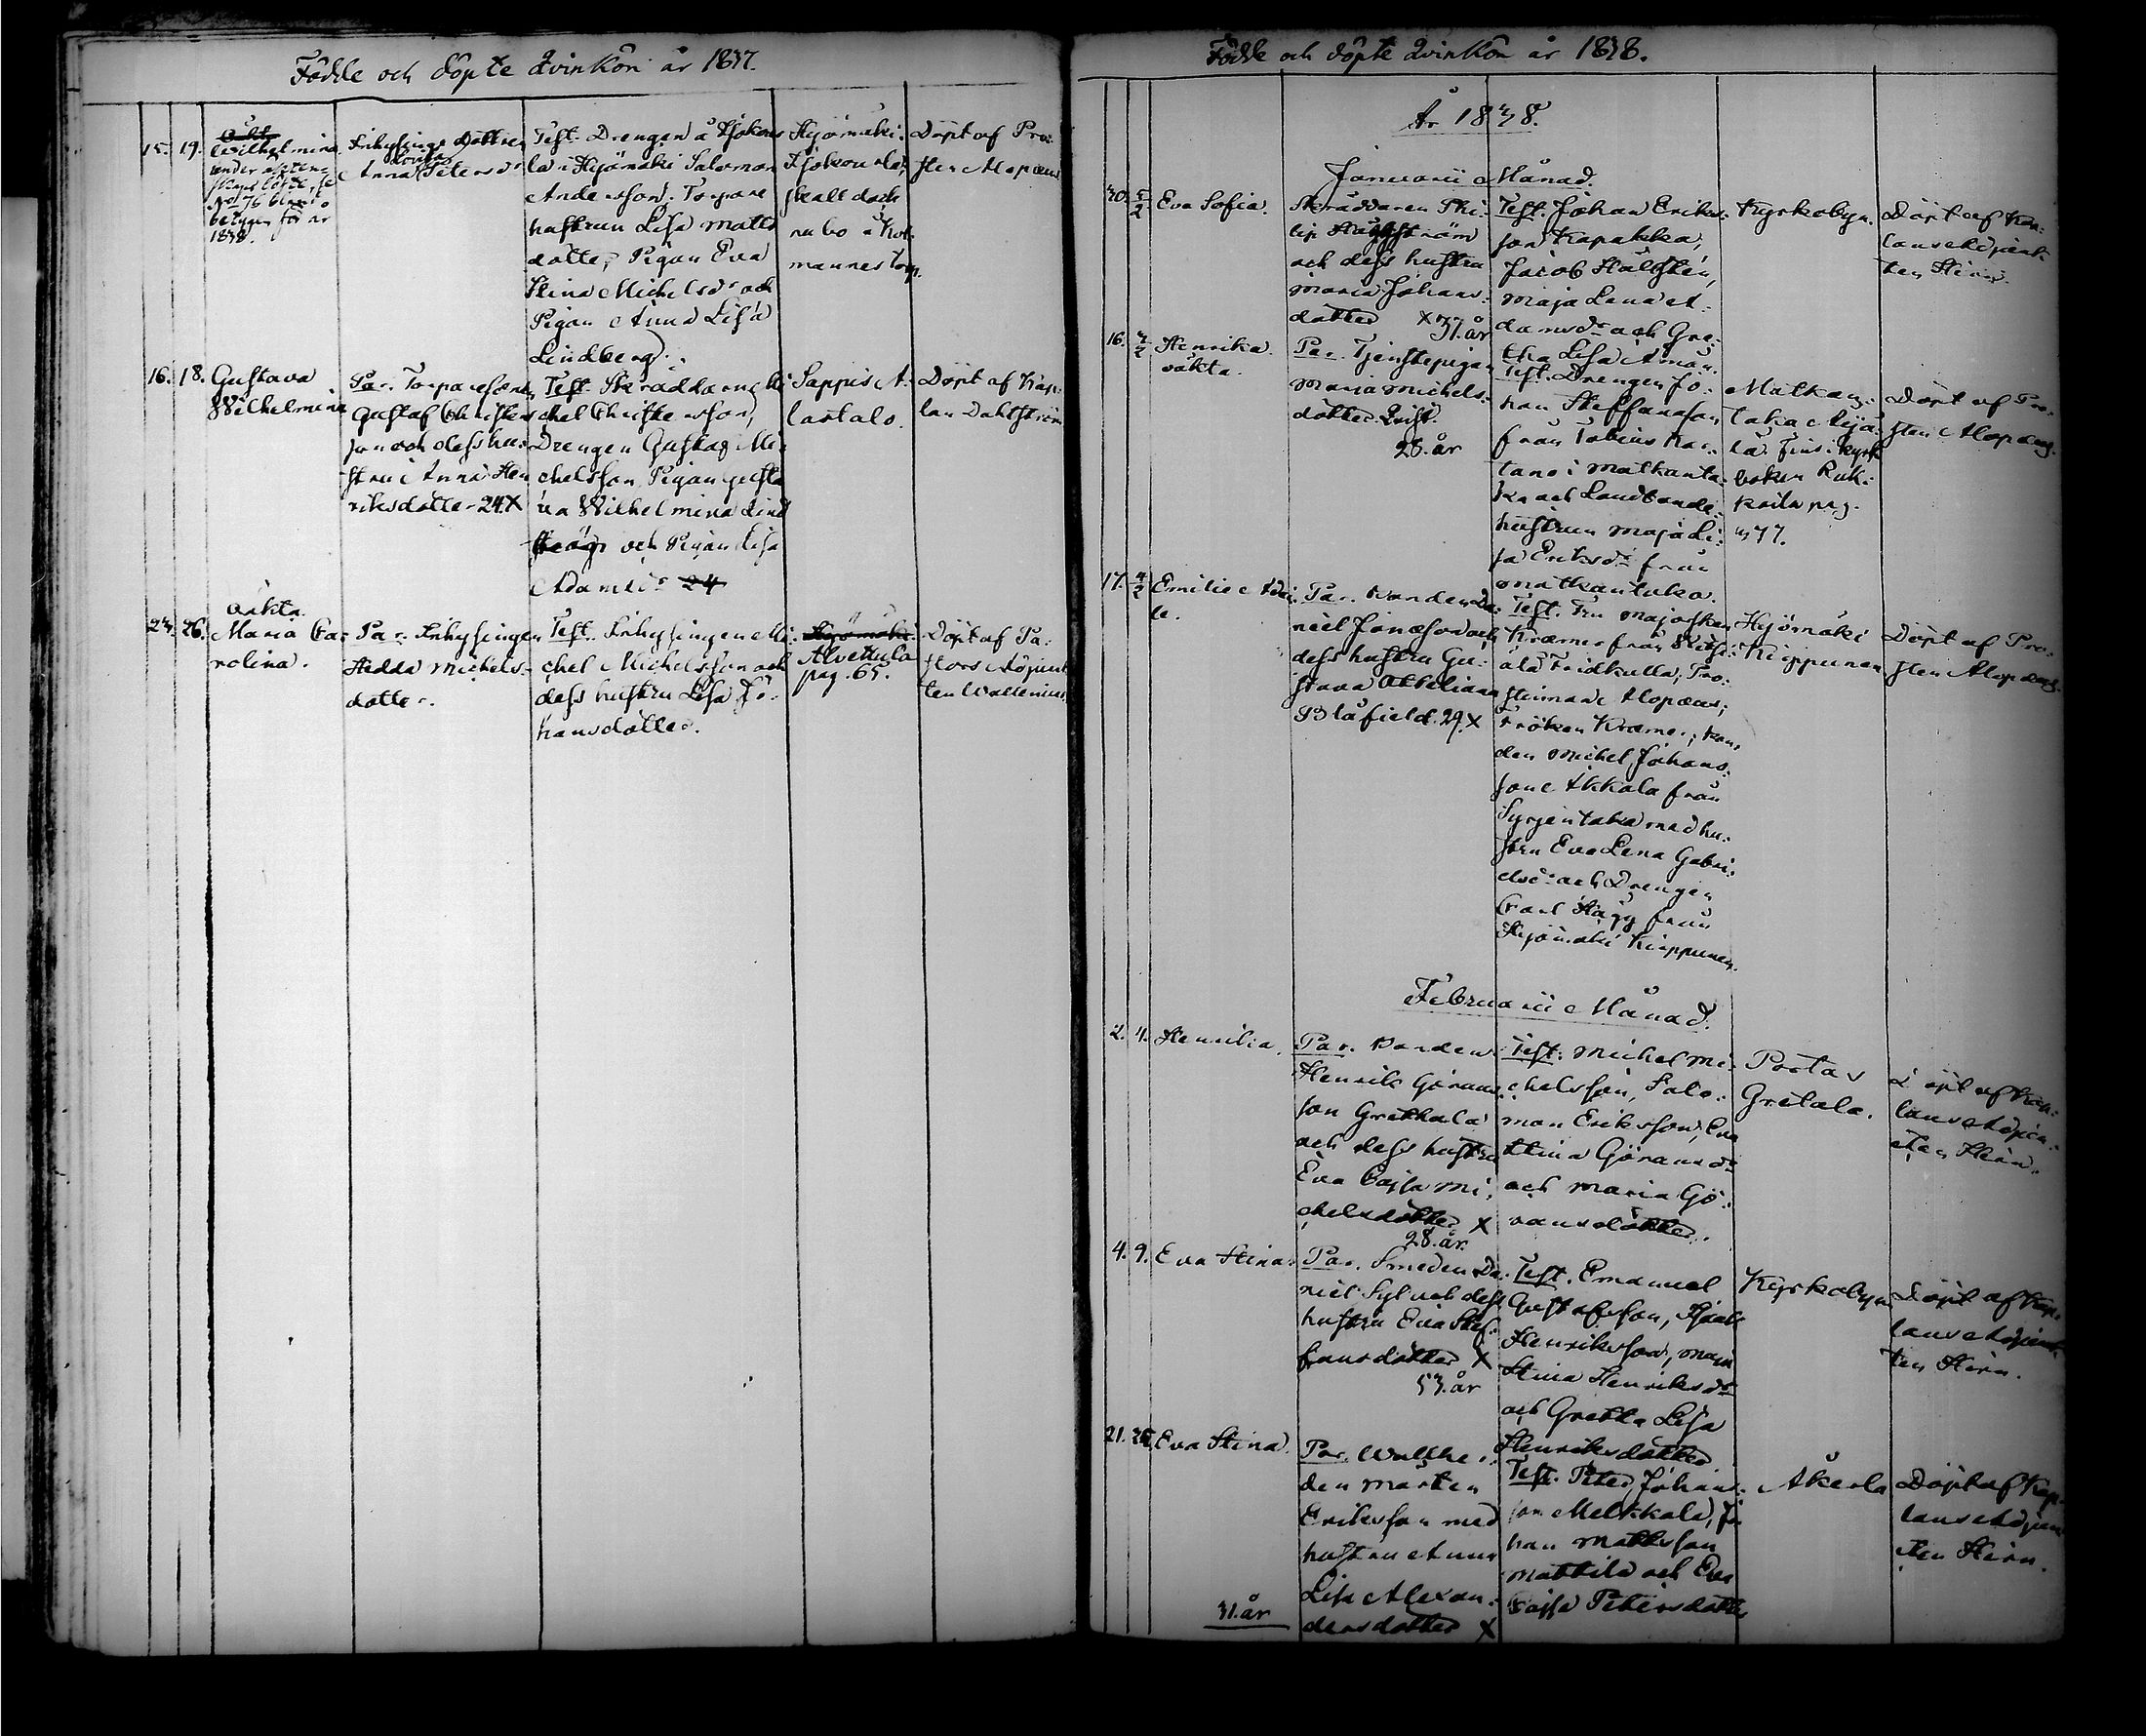 Födde och döpte Qvinkön år 1837.
15. 19.
Wilhelmina
under ägten-
1838.
Inhysinge Dottren
Lovisa
Anna Petersdr
Test. Drengen
la i Hyömäki Salomon
Andersson. Torpare
hustrun Lisa Matts
dotter, Pigan Eva
Stina Michelsdr och
Pigan Anna Lisa
Lindberg.
Hyömäki
skall dock
nu bo i
mannes torp.
Döpt af Pro-
sten Alopæus
16. 18.
Gustava
Wilhelmina
Par. Torparesonen
Gustaf Christers
son och dess hu-
stru Anna Hen
riksdotter 24 X
Test. Skräddaren Mi
chel Christersson,
Drengen Gustaf Mi-
chelsson, Pigan Justi
na Wilhelmina Lind
och Pigan Lisa
Adamsdr 24
Sappis A-
lastalo.
Döpt af Kap-
lan Dahlström
23. 26.
oäkta.
Maria Ca-
rolina.
Par. Inhysingen
Hedda Michels-
dotter.
Test. Inhysingen Mi-
chel Michelsson och
dess hustru Lisa Jo-
hansdotter.
Hyömäki
Alvettula
pag. 65.
Döpt af Pa-
stors Adjunk
ten Wallenius.
Födde och döpte Qvinkön år 1838.
År 1838.
Januarii Månad.
30. 5/2
Eva Sofia.
Skräddaren Phi-
lip
och dess hustru
Maria Johans-
dotter X 31. år
Test. Johan Eriks-
son Kapakka,
Jacob Hällsten,
Maja Lena A-
damsdr och Gre-
tha Lisa
Kyrkobyn.
Döpt af Kap-
lans Adjunk-
ten Hirn.
16.
Henrika.
oäkta.
Par. Tjenstepigan
Maria Michels-
dotter Qvist.
28. år
Test. Drengen Jo-
han Steffansson
från Tobias Kar-
tano i Matkanta-
ka och Landbonde-
hustrun Maja Li-
sa Eriksdr från
Matkantaka.
Matkan-
taka Äijä-
lä. Fins i kyrk
boken Ruk-
koila pag.
Döpt af Pro-
sten Alopæus.
17. 4/2
Emilie Ade-
le.
Par. Bonden Da-
niel Jonæson och
dess hustru Gu-
stava Ottiliana
Blåfield. 29. X
Test. Fru Majorskan
Kræmer från
Fridkulla, Pro-
stinnan Alopæus;
Fröken Kræmer; Bon-
den Michel Johans-
son Akkala från
Syrjentaka med hu-
stru Eva Lena Gabri-
elsdr och Drengen
Carl Hägg från
Hyömäki Kirppunen.
Hyömäki
Kirppunen
Döpt af Pro-
sten Alopæus.
Februarii Månad.
2. 4.
Henrika.
Par. Bonden
Henrik Görans-
son Grethala
och dess hustru
Eva Cajsa Mi-
chelsdotter X
28. år.
Test. Michel Mi-
chelsson, Salo-
mon Eriksson, Eva
Stina Göransdr
och Maria Gö-
ransdotter.
Portas
Gretala.
Döpt af Kap-
lans Adjun-
cten Hirn.
4. 9.
Eva Stina.
Par. Smeden Da-
niel Syl och dess
hustru Eva Stef-
fansdotter X
33. år
Test. Emanuel
Gustafsson, Isaac
Henriksson, Maja
Stina Henriksdr
och Gretha Lisa
Henriksdotter
Kyrkobyn
Döpt af Kap-
lans Adjunk-
ten Hirn.
21. 25.
Eva Stina.
31. år
Par.
den Mårten
Eriksson med
hustru Anna
Lisa Alexan-
dersdotter X
Test. Peter Johans-
son Melkkala, Jo
han Mattsson
Mattila och Eva
Cajsa Petersdotter
Åkerla
Döpt af Kap-
lans Adjun
cten Hirn.